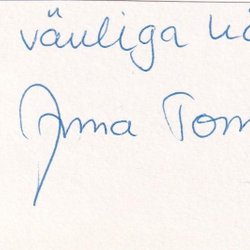 vänliga
Anna Tom